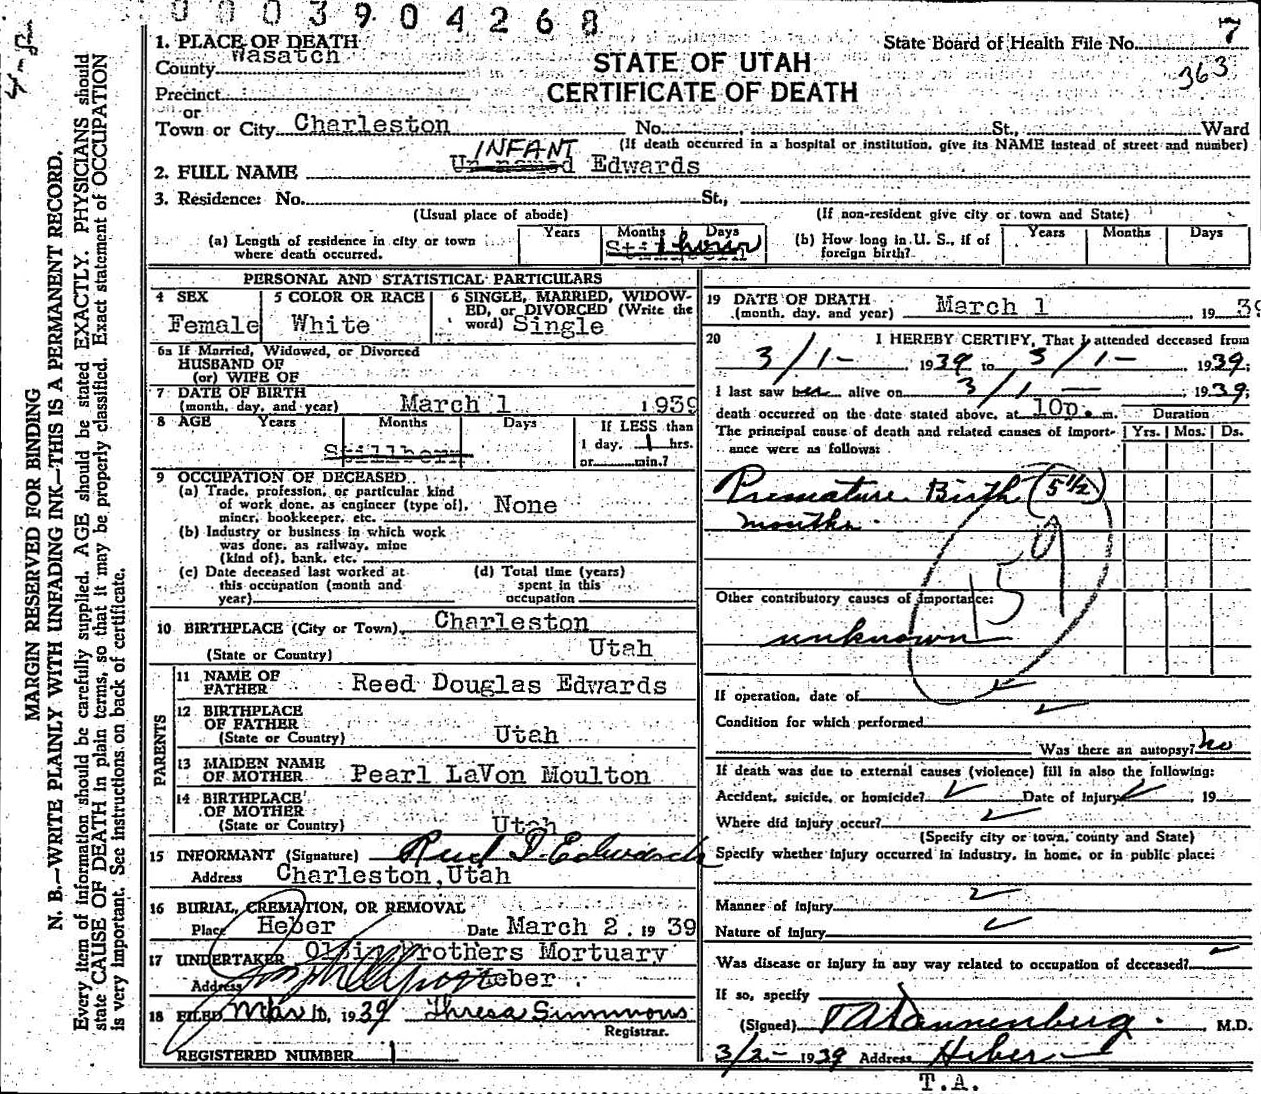 0003904268
7
State Board of Health File No.
363
1. PLACE OF DEATH
County Wasatch
STATE OF UTAH
CERTIFICATE OF DEATH
Precinct
or
Town or City Charleston No. St., Ward
(If death occurred in a hospital or institution, give its NAME instead of street and number)
INFANT
2. FULL NAME Un-named Edwards
3. Residence: No. St.,
(Usual place of abode) (If non-resident give city or town and State)
(a) Length of residence in city or town where death occurred. Years Months Days Stillborn 1 hour
(b) How long in U. S., if of foreign birth? Years Months Days
PERSONAL AND STATISTICAL PARTICULARS
4 SEX Female
5 COLOR OR RACE White
6 SINGLE, MARRIED, WIDOWED, or DIVORCED (Write the word) Single
6a If Married, Widowed, or Divorced
HUSBAND OF
(or) WIFE OF
7 DATE OF BIRTH
(month, day, and year) March 1 1939
8 AGE Years Months Days If LESS than
1 day, 1 hrs.
Stillborn or min.?
9 OCCUPATION OF DECEASED
(a) Trade, profession, or particular kind
of work done, as engineer (type of),
miner, bookkeeper, etc. None
(b) Industry or business in which work
was done, as railway, mine
(kind of), bank, etc.
(c) Date deceased last worked at
this occupation (month and
year)
(d) Total time (years)
spent in this
occupation
10 BIRTHPLACE (City or Town) Charleston
(State or Country) Utah
PARENTS
11 NAME OF
FATHER Reed Douglas Edwards
12 BIRTHPLACE
OF FATHER
(State or Country) Utah
13 MAIDEN NAME
OF MOTHER Pearl LaVon Moulton
14 BIRTHPLACE
OF MOTHER
(State or Country) Utah
15 INFORMANT (Signature) Reed D. Edwards
Address Charleston, Utah
16 BURIAL, CREMATION, OR REMOVAL
Place Heber Date March 2, 1939
17 UNDERTAKER Olpin Brothers Mortuary
Address Heber
18 FILED Mar 10, 1939 Thresa Simmons
Registrar.
REGISTERED NUMBER 1
19 DATE OF DEATH
(month, day, and year) March 1, 1939
20 I HEREBY CERTIFY, That I attended deceased from
3/1- 1939 to 3/1- 1939;
I last saw her alive on 3/1 — 1939;
death occurred on the date stated above, at 10p. m.
Duration
The principal cause of death and related causes of importance were as follows:
Yrs. Mos. Ds.
Premature Birth (5 1/2)
months.
159
Other contributory causes of importance:
unknown
If operation, date of
Condition for which performed
Was there an autopsy? no
If death was due to external causes (violence) fill in also the following:
Accident, suicide, or homicide? Date of injury , 19
Where did injury occur?
(Specify city or town, county and State)
Specify whether injury occurred in industry, in home, or in public place:
Manner of injury
Nature of injury
Was disease or injury in any way related to occupation of deceased?
If so, specify
(Signed) TA Dannenberg. M.D.
3/2- 1939 Address Heber
T.A.
MARGIN RESERVED FOR BINDING
N. B.—WRITE PLAINLY WITH UNFADING INK—THIS IS A PERMANENT RECORD.
Every item of information should be carefully supplied. AGE should be stated EXACTLY. PHYSICIANS should
state CAUSE OF DEATH in plain terms, so that it may be properly classified. Exact statement of OCCUPATION
is very important. See instructions on back of certificate.